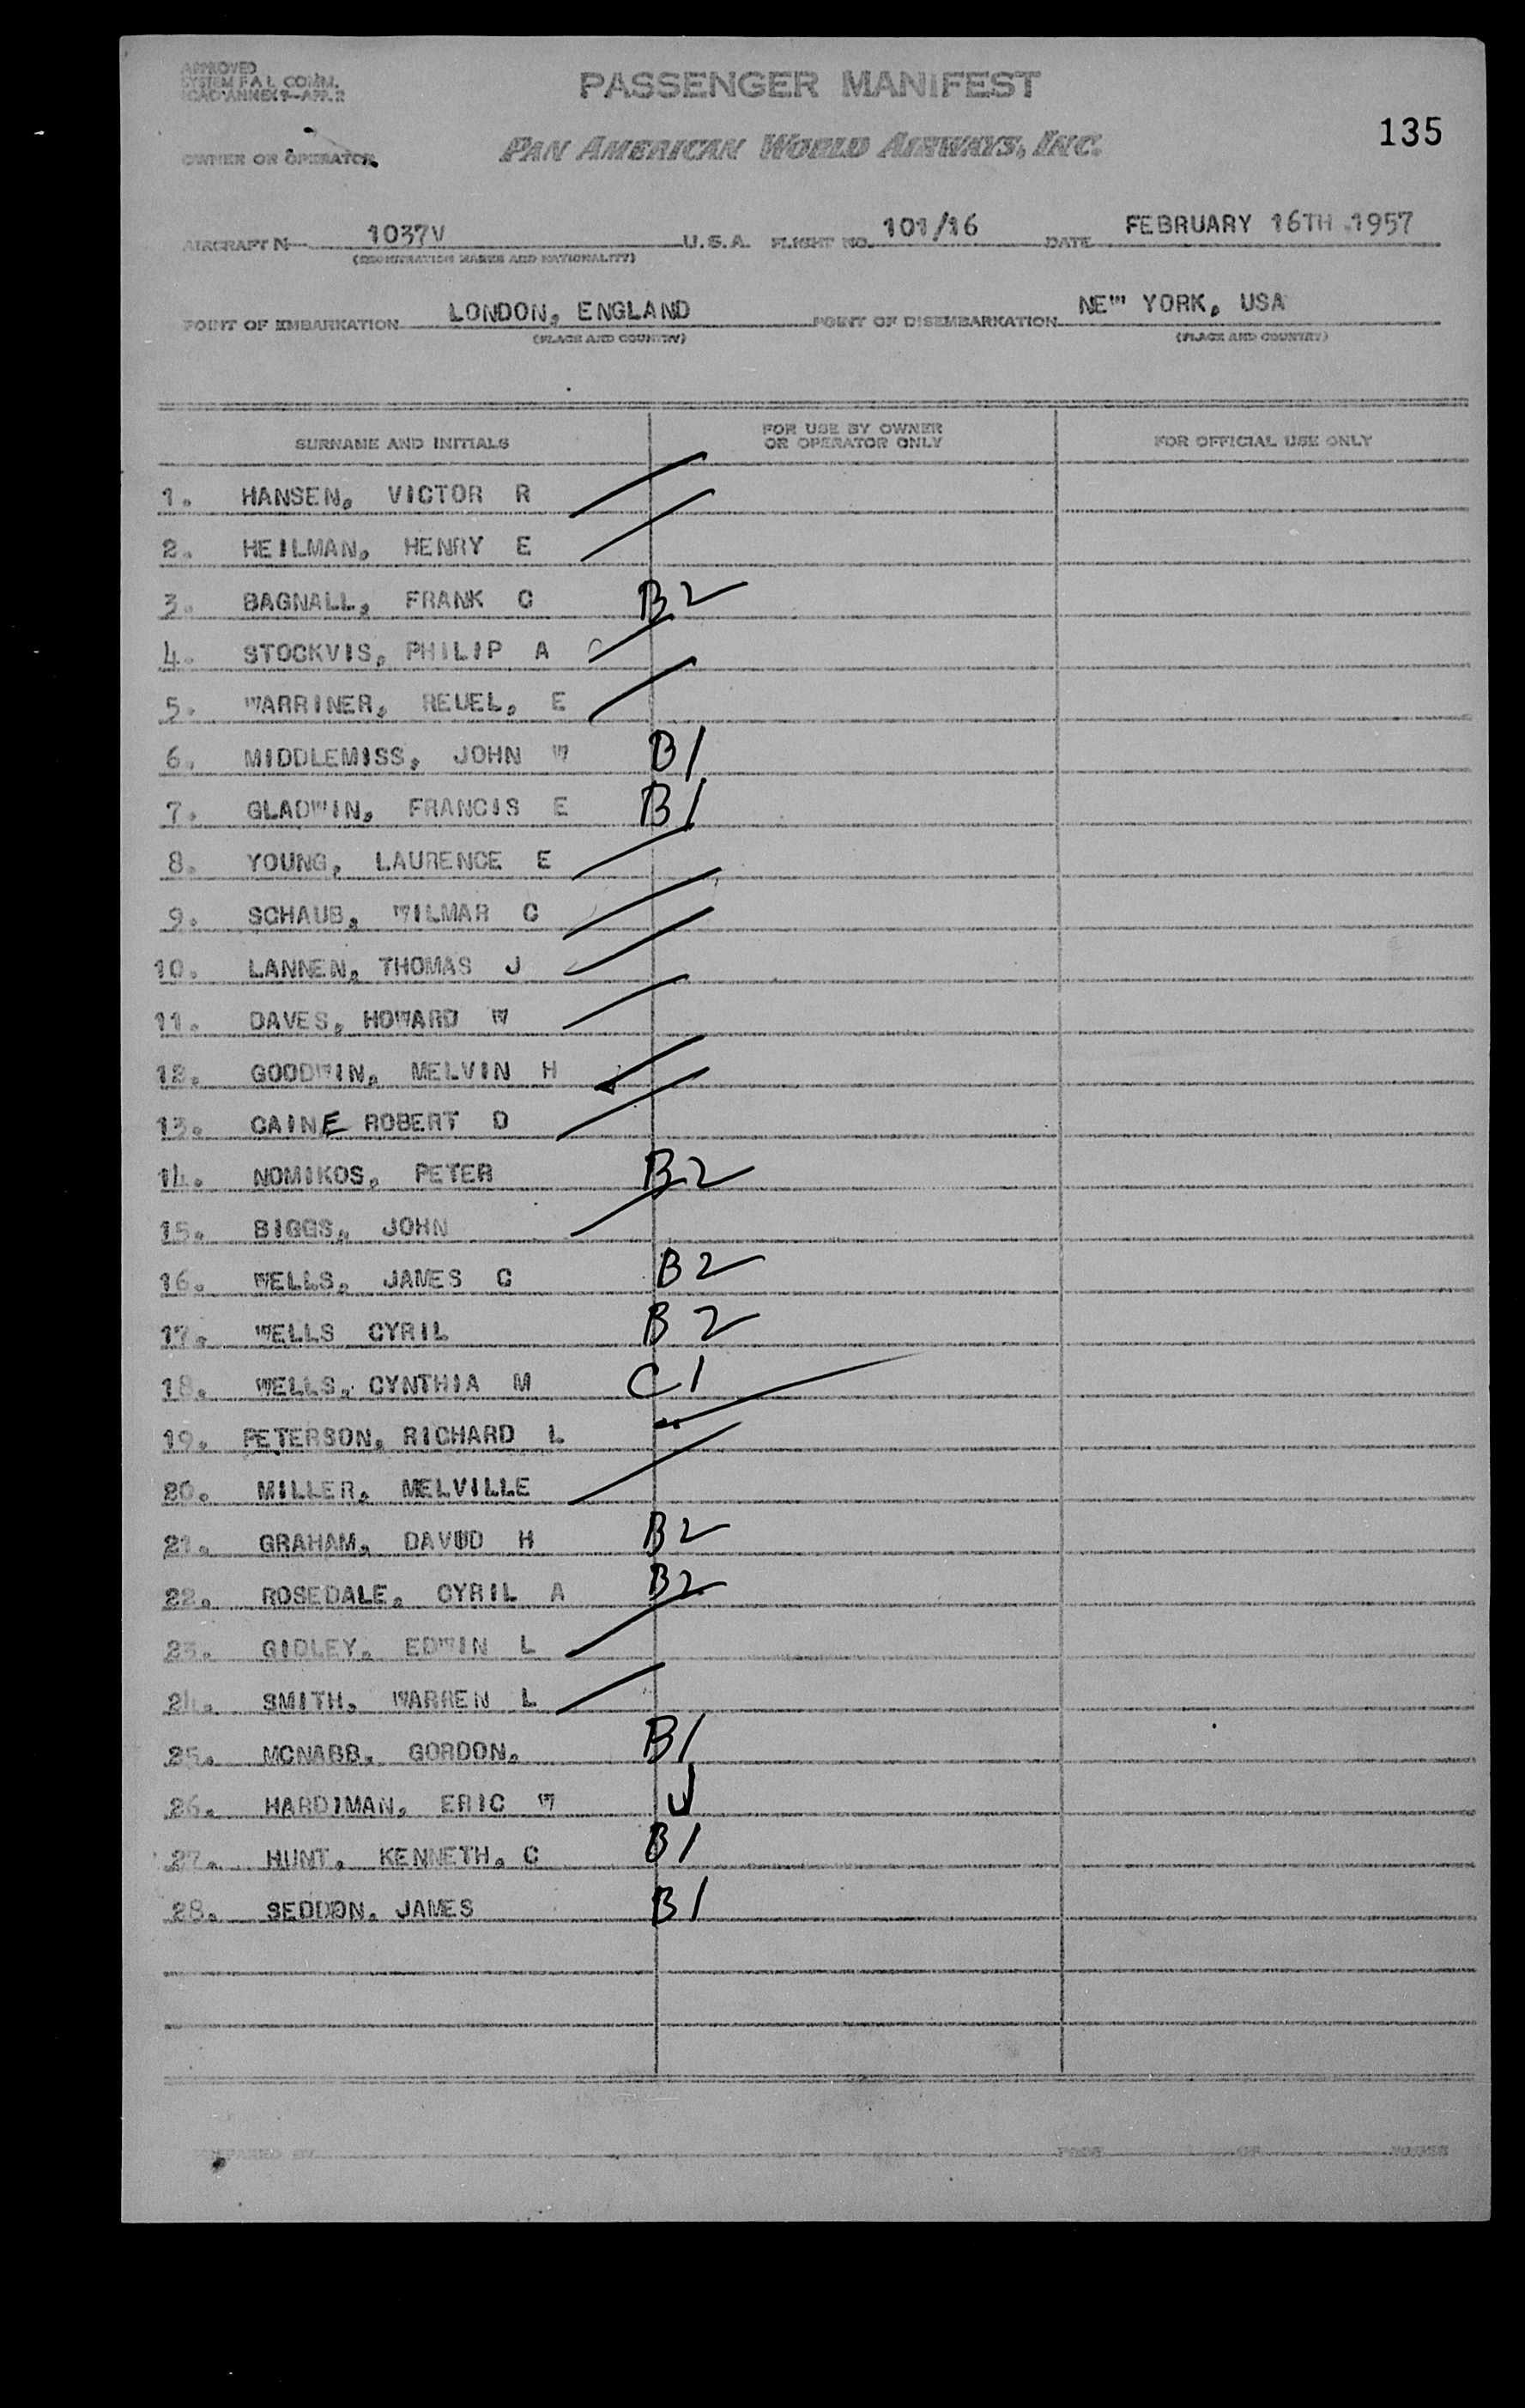 APPROVED
SYSTEM F.A.L. COMM.
ICAO ANNEX 9-APP. 2
PASSENGER MANIFEST
135
OWNER OR OPERATOR
PAN AMERICAN WORLD AIRWAYS, INC.
AIRCRAFT N 1037V U.S.A. FLIGHT NO. 101/16 DATE FEBRUARY 16TH 1957
(REGISTRATION MARKS AND NATIONALITY)
POINT OF EMBARKATION LONDON, ENGLAND POINT OF DISEMBARKATION NEW YORK, USA
(PLACE AND COUNTRY) (PLACE AND COUNTRY)
SURNAME AND INITIALS FOR USE BY OWNER OR OPERATOR ONLY FOR OFFICIAL USE ONLY
1. HANSEN, VICTOR R
2. HEILMAN, HENRY E
3. BAGNALL, FRANK C B2
4. STOCKVIS, PHILIP A
5. WARRINER, REUEL, E
6. MIDDLEMISS, JOHN W B1
7. GLADWIN, FRANCIS E B1
8. YOUNG, LAURENCE E
9. SCHAUB, WILMAR C
10. LANNEN, THOMAS J
11. DAVES, HOWARD W
12. GOODWIN, MELVIN H
13. CAINE ROBERT D
14. NOMIKOS, PETER B2
15. BIGGS, JOHN
16. WELLS, JAMES C B2
17. WELLS CYRIL B2
18. WELLS, CYNTHIA M C1
19. PETERSON, RICHARD L
20. MILLER, MELVILLE
21. GRAHAM, DAVID H B2
22. ROSEDALE, CYRIL A B2
23. GIDLEY, EDWIN L
24. SMITH, WARREN L
25. MCNABB, GORDON, B1
26. HARDIMAN, ERIC W J
27. HUNT, KENNETH, C B1
28. SEDDON, JAMES B1
PREPARED BY PAGE OF